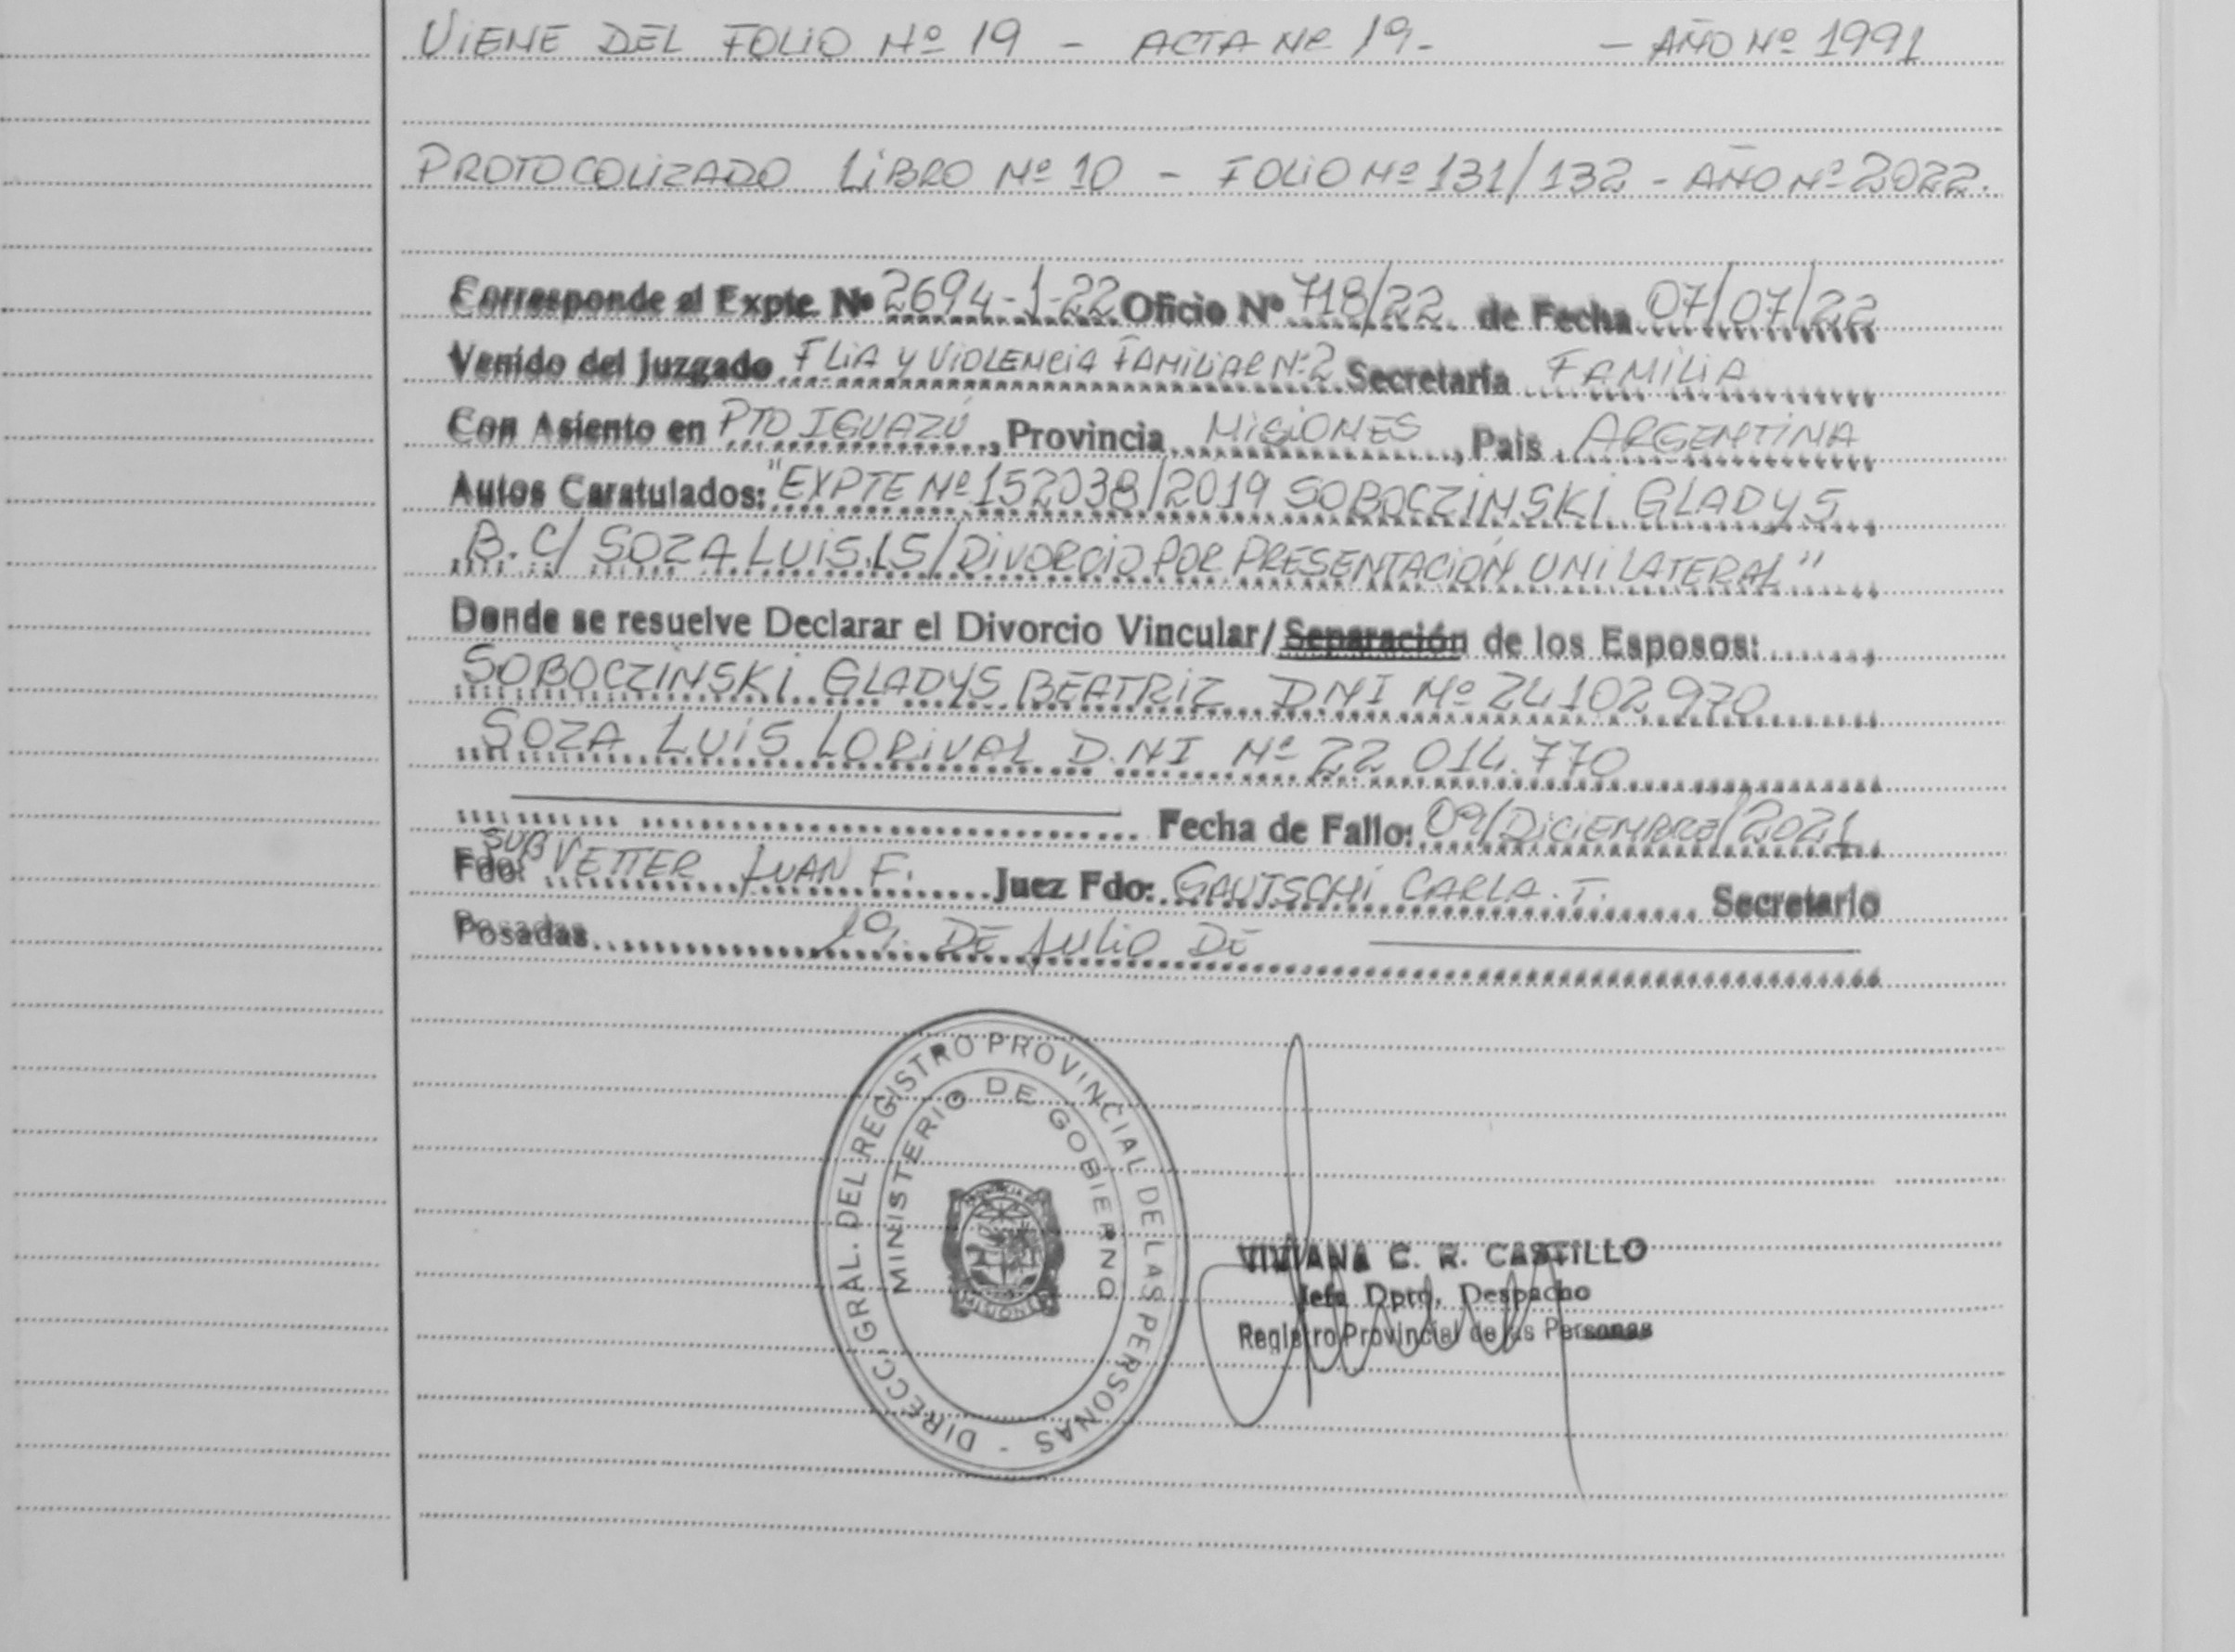 VIENE DEL FOLIO Nº 19 - ACTA Nº 19. - AÑO Nº 1991
PROTOCOLIZADO LIBRO Nº 10 - FOLIO Nº 131/132 - AÑO Nº 2022.
Corresponde al Expte. Nº 2694-1-22 Oficio Nº 718/22 de Fecha 07/07/22
Venido del Juzgado FLIA Y VIOLENCIA FAMILIAR Nº2 Secretaría FAMILIA
Con Asiento en PTO IGUAZÚ, Provincia MISIONES, País ARGENTINA
Autos Caratulados: "EXPTE Nº 152038/2019 SOBOCZINSKI GLADYS
B. C/ SOZA LUIS.L S/DIVORCIO POR PRESENTACIÓN UNILATERAL"
Donde se resuelve Declarar el Divorcio Vincular/Separación de los Esposos:
SOBOCZINSKI GLADYS BEATRIZ DNI Nº 24102970
SOZA LUIS LORIVAL D.NI Nº 22 014.770
Fecha de Fallo: 09/DICIEMBRE/2021
Fdo: SUB VETTER JUAN F. Juez Fdo: GAUTSCHI CARLA. T. Secretario
Posadas 19. DE JULIO DE
DIRECC. GRAL. DEL REGISTRO PROVINCIAL DE LAS PERSONAS -
MINISTERIO DE GOBIERNO
PROVINCIA DE
MISIONES
VIVIANA C. R. CASTILLO
Jefa Dpto. Despacho
Registro Provincial de las Personas